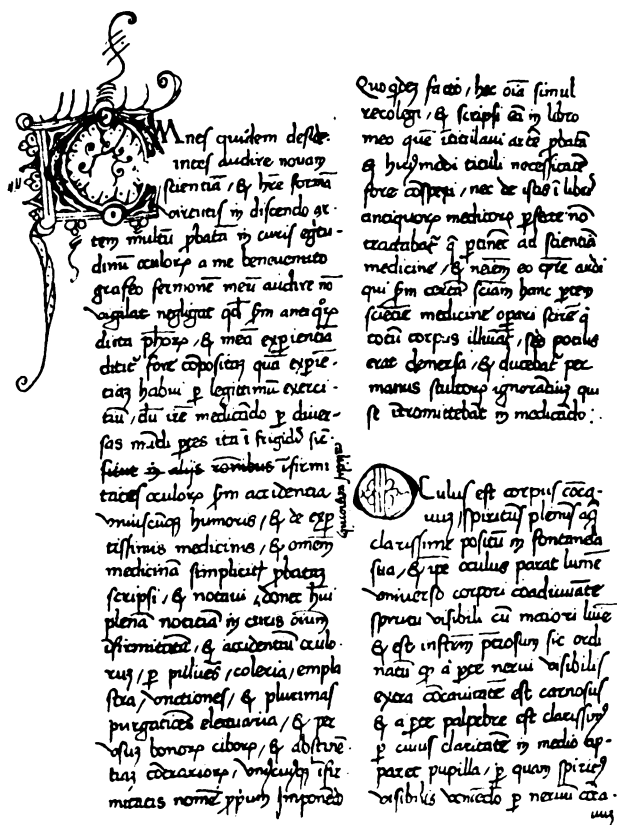 Omnes quidem deside-
rantes audire novam
scientiā, & hr̄e formā
virtutis in discendo ar-
tem multū ꝓbatā in curis egritu-
dinū oculoꝝ a me benevenuto
grafeo sermonē meū audire nō
negligat qd̓ ẜm antiquoꝝ
dicta pħoꝝ, & meā experientiā
fore cōpositaꝫ quā experiē-
ciaꝫ habui ꝑ legitimū exerci-
tiū, dū ire medicādo ꝑ diver-
sas mūdi ꝑtes ita ī frigid̓
in alijs ifirmi
tates oculoꝝ ẜm accidencia
uniuscuiusqꝫ humoris, & de exꝑ
tissimis medicinis, & omēm
medicinā simpliciter ꝓbataꝫ
scripsi, & notavi, donec hui
plenā noticiā in curis oīum
ifirmitatū, & accidentiū oculo-
rum, ꝑ pillules, coleria, empla
stra, unctiones, & plurimas
purgatiōes electuaria, & per
usuꝫ bonoꝝ ciboꝝ, & abstinē-
tiaꝫ cōtrarioꝝ, unicuiqꝫ ifir
mitatis nomē ꝓpiuꝫ imponēdo
calidis regionibꝫ
Quo quidem facto, hec oīa simul
recolegi, & scripsi ea in libro
meo quē ītitulavi artē ꝓbatā
& huiꝰmodi tituli necessitatē
fore cōspexi, nec de istis ī libris
antiquoꝝ medicoꝝ ꝑfecte nō
tractabat̄ q̄ ꝑtinēt ad scientiā
medicine, &
qui ẜm certā sciam hanc ꝑtem
sciētie medicine opari sciret q̄
totū corpus illuīat, seꝫ pocius
erat demersa, & ducebat̄ per
manus stultoꝝ ignorātiuꝫ qui
se ītromittebāt in medicādo:
Oculus est corpus cōca-
vuꝫ, spiritus plenus aq̄
clarissime positū in fontanela
sua, & ipe oculus parat lumē
universo corpori coadiuvāte
spiritu visibili cū maiori luīe
& est instr̄m ꝑciosum sic ordi
natū qꝫ a ꝑte nervi visibilis
extra cōcavitatē est carnosus
& a ꝑte palpebre est clarissimꝰ
ꝑ cuius claritatē in medio ap-
paret pupilla, ꝑ quam spiritꝰ
visibilis veniēdo ꝑ nervū cōca-
vuꝫ